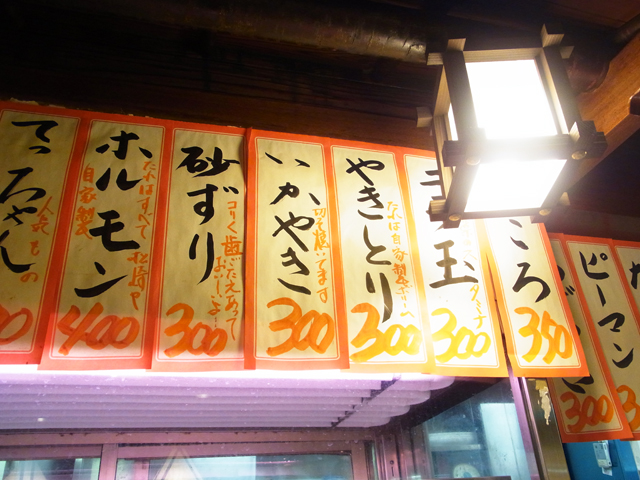 てっちゃん
人気もの
ホルモン
自家製
たれはすべて
400
砂ずり
コリコリ歯ごたえあって
おいしいよ
300
いかやき
切って焼いてます
300
やきとり
たれは自家製
300
玉
300
ころ
350
ピーマン
300